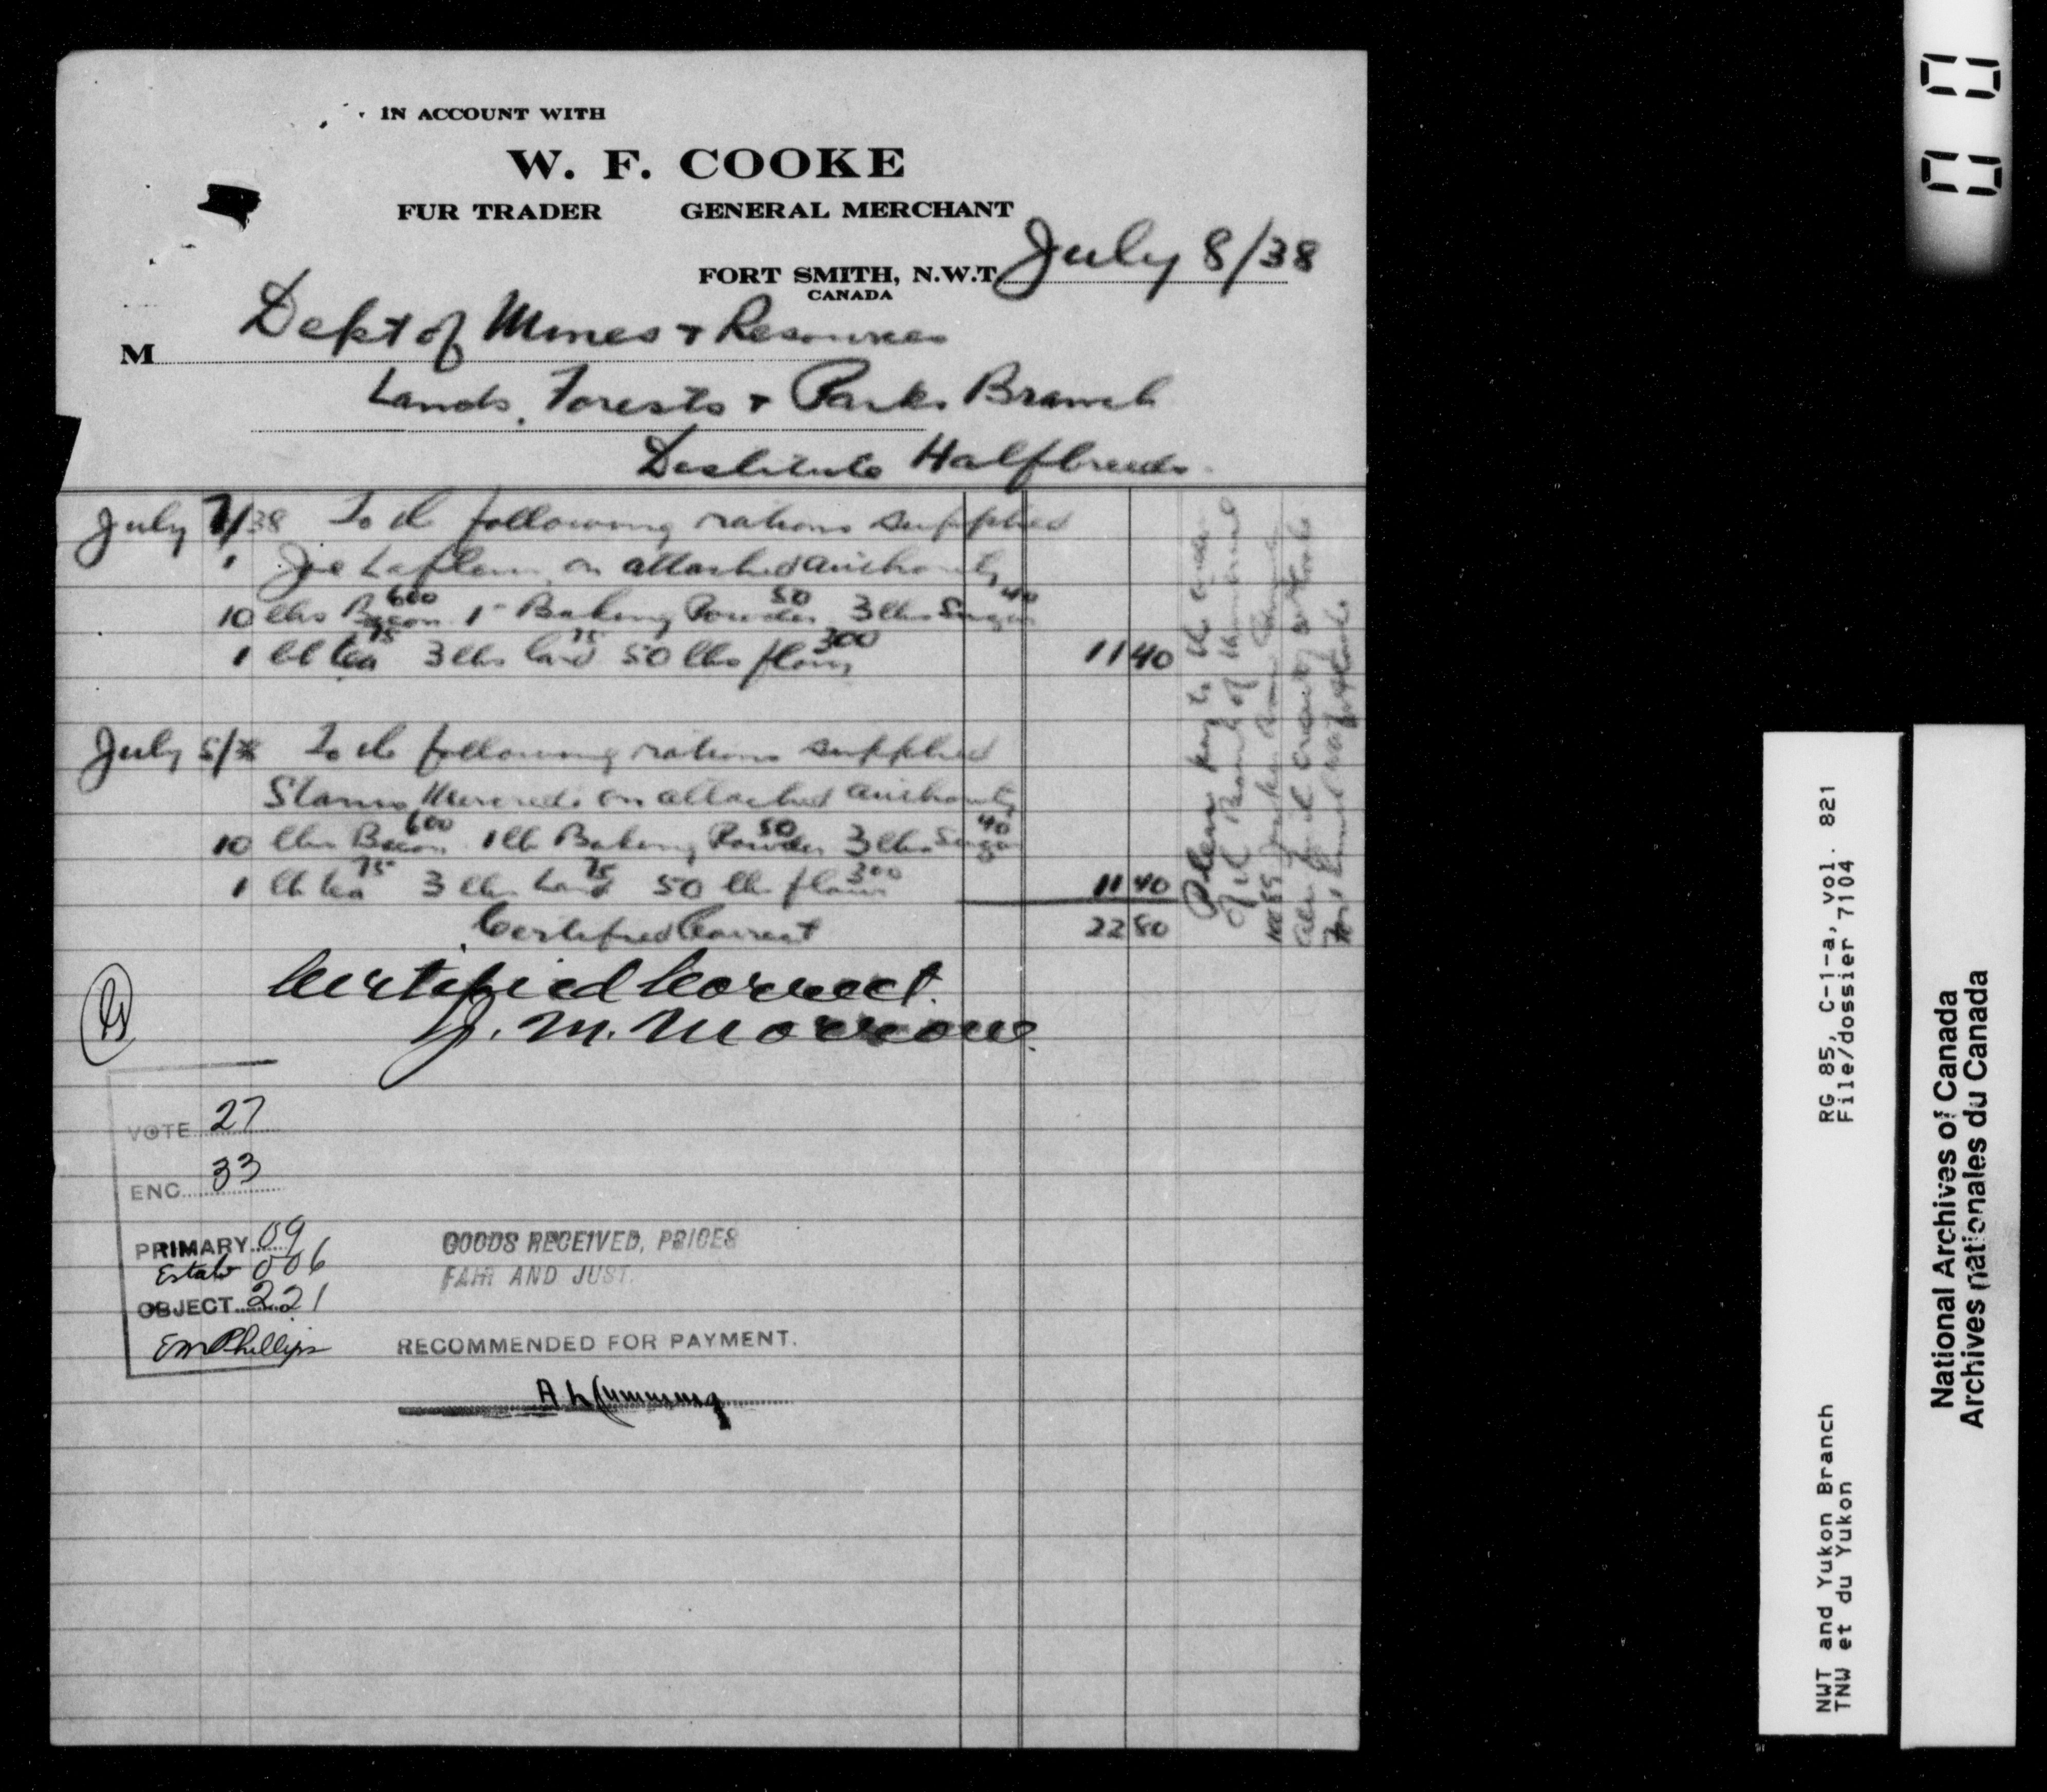 IN ACCOUNT WITH
W. F. COOKE
FUR TRADER GENERAL MERCHANT
FORT SMITH, N.W.T. July 8/38
CANADA
M Dept of Mines & Resources
Lands, Forests & Parks Branch
Destitute Halfbreeds
July 7/38 To the following rations supplied
Joe on attached authority
10 lbs Bacon 600 1 - Baking Powder 50 3 lbs Sugar 40
1 lb tea 75 3 lbs lard 75 50 lbs flour 300 11 40
July 5/38 To the following rations supplied
on attached authority
10 lbs Bacon 600 1 lb Baking Powder 50 3 lbs Sugar 40
1 lb tea 75 3 lbs Lard 75 50 lb flour 300 11 40
Certified Correct 22 80
Certified Correct.
J. M. Morrow.
Please pay to the order
of the Bank of Montreal
VOTE 27
ENC. 33
PRIMARY 09
Estab 006
OBJECT 221
EM Phillips
GOODS RECEIVED, PRICES
FAIR AND JUST.
RECOMMENDED FOR PAYMENT.
A L Cumming
NWT and Yukon Branch RG 85, C-1-a, vol. 821
TNW et du Yukon File/dossier 7104
National Archives of Canada
Archives nationales du Canada